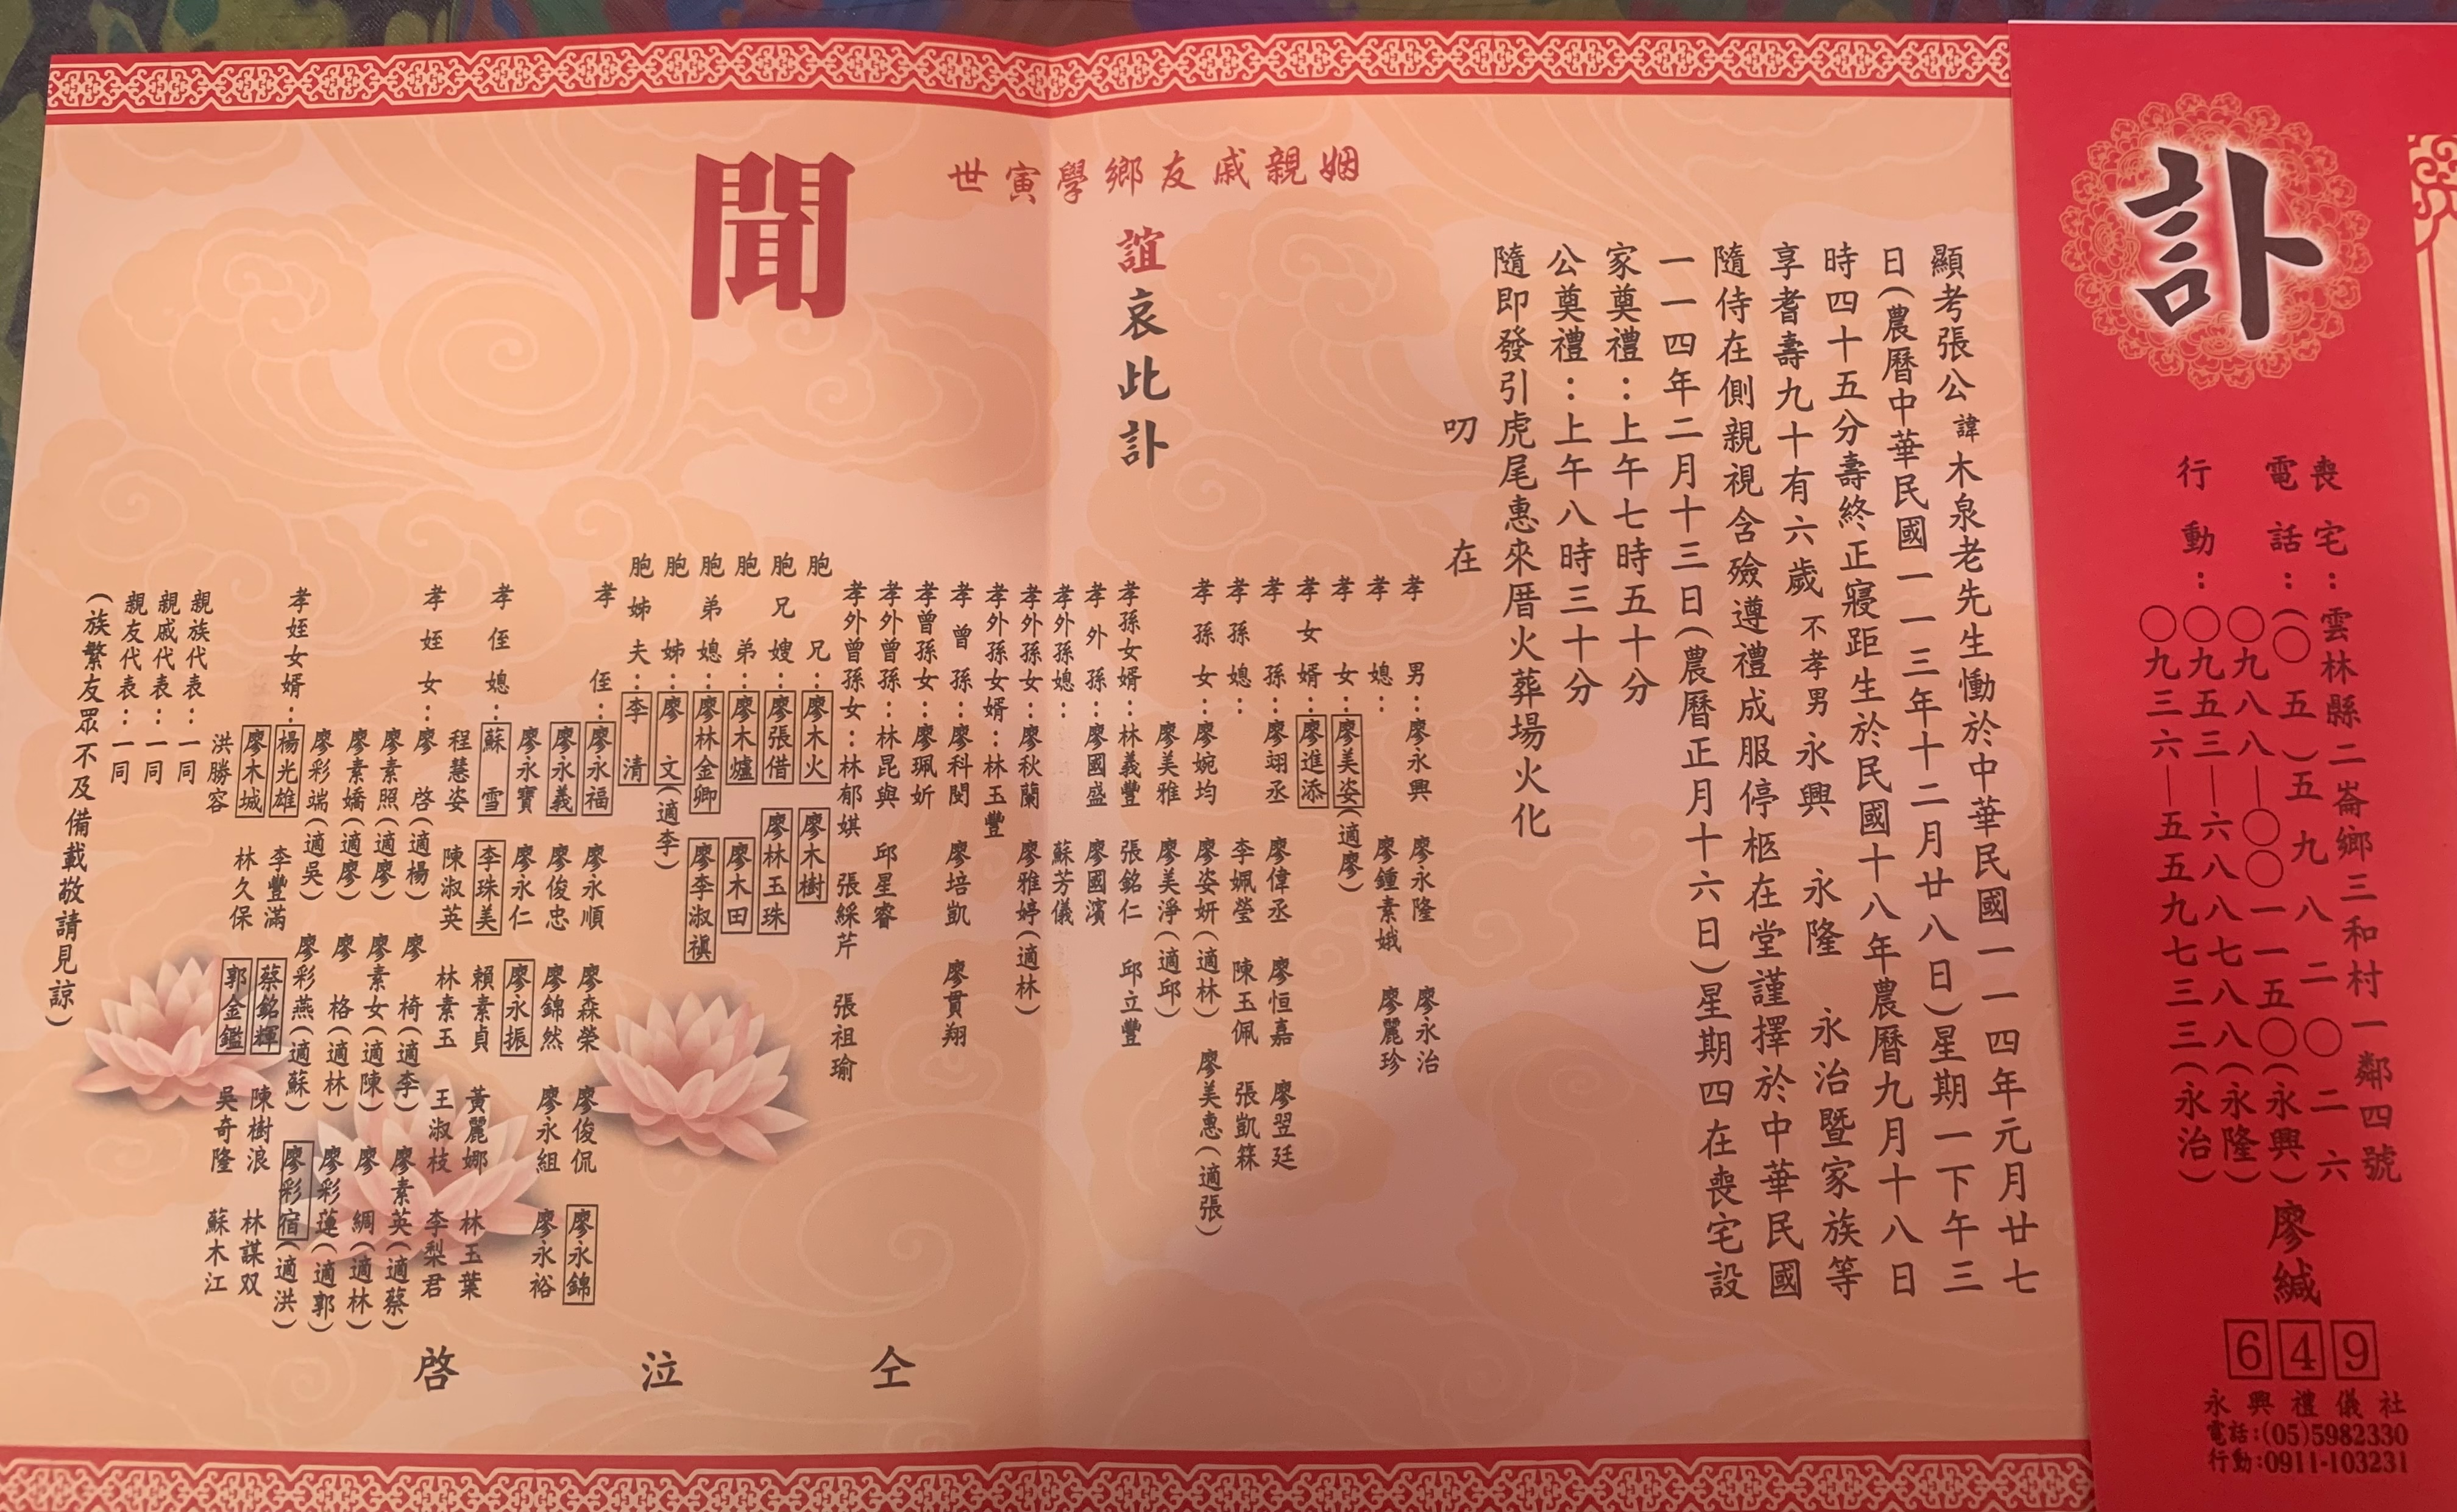 訃
喪宅：雲林縣二崙鄉三和村一鄰四號
電話：(〇五)五九八二〇二六
行動：〇九八八—〇〇一一五〇(永興)
〇九五三—六八八七八八(永隆)
〇九三六—五五九七三三(永治)
廖緘
649
永興禮儀社
電話:(05)5982330
行動:0911-103231
顯考張公諱木泉老先生慟於中華民國一一四年元月廿七
日(農曆中華民國一一三年十二月廿八日)星期一下午三
時四十五分壽終正寢距生於民國十八年農曆九月十八日
享耆壽九十有六歲不孝男永興 永隆 永治暨家族等
隨侍在側親視含殮遵禮成服停柩在堂謹擇於中華民國
一一四年二月十三日(農曆正月十六日)星期四在喪宅設
家奠禮：上午七時五十分
公奠禮：上午八時三十分
隨即發引虎尾惠來厝火葬場火化
叨 在
姻親戚友鄉學寅世
誼哀此訃
聞
孝男：廖永興 廖永隆 廖永治
孝媳：廖鍾素娥 廖麗珍
孝女：廖美姿(適廖)
孝女婿：廖進添
孝孫：廖翊丞 廖偉丞 廖恒嘉 廖翌廷
孝孫媳：李姵瑩 陳玉佩 張凱箖
孝孫女：廖婉均 廖姿妍(適林) 廖美惠(適張)
廖美雅 廖美淨(適邱)
孝孫女婿：林義豐 張銘仁 邱立豐
孝外孫：廖國盛 廖國濱
孝外孫媳：蘇芳儀
孝外孫女：廖秋蘭 廖雅婷(適林)
孝外孫女婿：林玉豐
孝曾孫：廖科閔 廖培凱 廖貫翔
孝曾孫女：廖珮妡
孝外曾孫：林昆與 邱星睿
孝外曾孫女：林郁娸 張綵芹 張祖瑜
胞兄：廖木火 廖木樹
胞兄嫂：廖張借 廖林玉珠
胞弟：廖木爐 廖木田
胞弟媳：廖林金卿 廖李淑禛
胞姊：廖文(適李)
胞姊夫：李清
孝侄：廖永福 廖永順 廖森榮 廖俊侃 廖永錦
廖永義 廖俊忠 廖錦然 廖永組 廖永裕
廖永寶 廖永仁 廖永振
孝侄媳：蘇雪 李珠美 賴素貞 黃麗娜 林玉葉
程慧姿 陳淑英 林素玉 王淑枝 李梨君
孝姪女：廖啓(適楊) 廖椅(適李) 廖素英(適蔡)
廖素照(適廖) 廖素女(適陳) 廖綢(適林)
廖素嬌(適廖) 廖格(適林) 廖彩蓮(適郭)
廖彩端(適吳) 廖彩燕(適蘇) 廖彩宿(適洪)
孝姪女婿：楊光雄 李豐滿 蔡銘輝 陳樹浪 林謀双
廖木城 林久保 郭金鑑 吳奇隆 蘇木江
洪勝容
親族代表：一同
親戚代表：一同
親友代表：一同
(族繁友眾不及備載敬請見諒)
仝 泣 啓